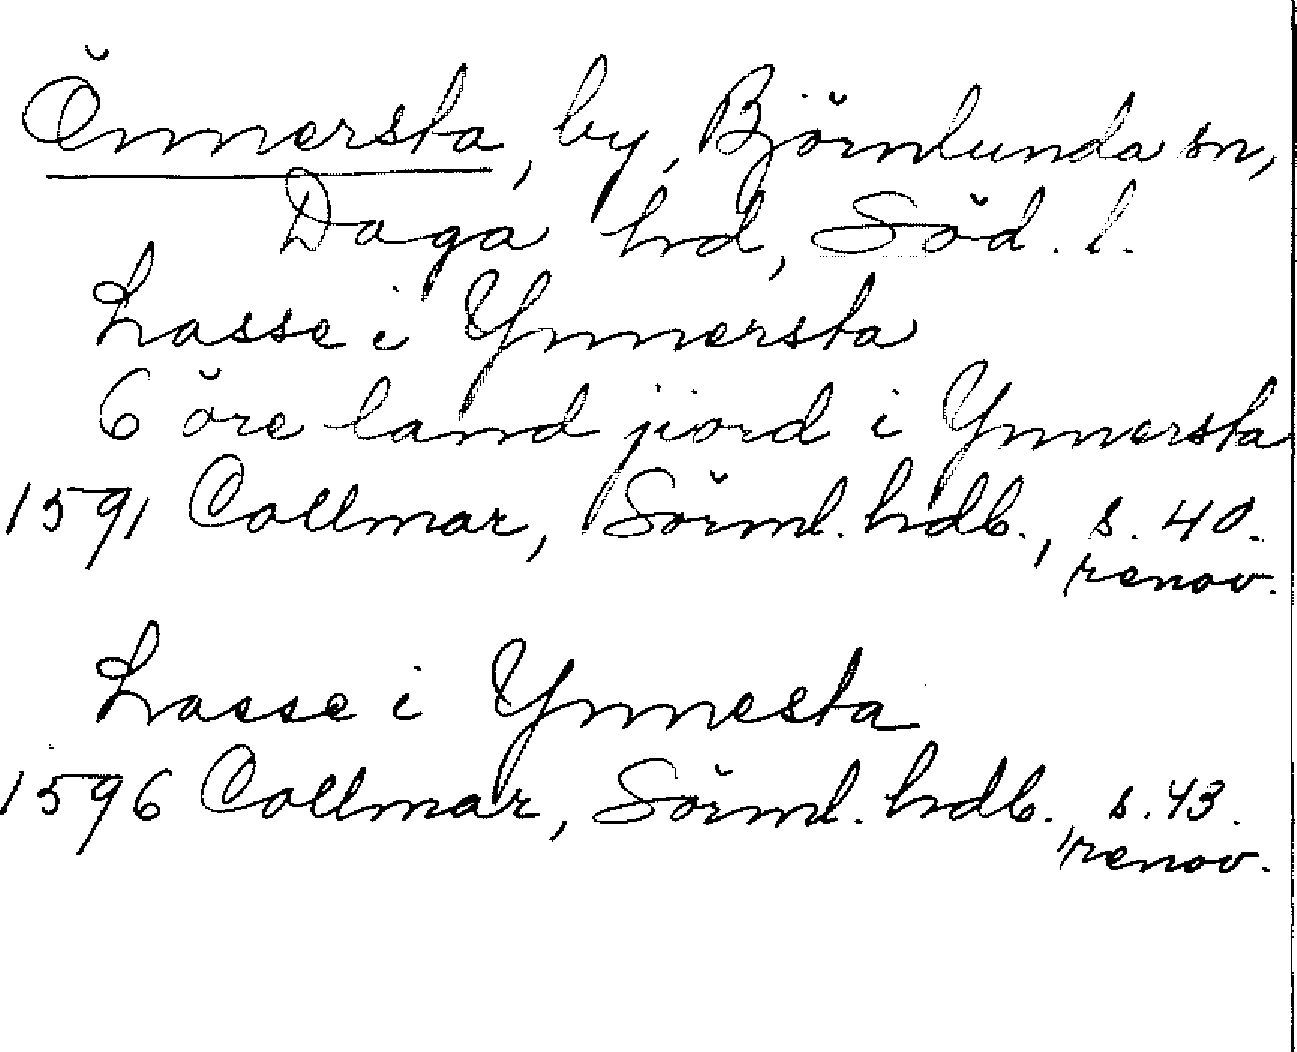 Önnersta, by, Björnlunda sn,
Daga hd, Söd. l.
Lasse i Ynnersta
6 öre land jiord i Ynnersta
1591 Collmar, Sörml. hdb., s. 40.
renov.
Lasse i Ynnesta
1596 Collmar, Sörml. hdb., s. 43.
renov.